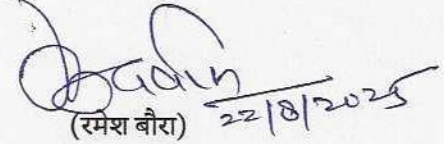 22/8/2025
(रमेश बौरा)